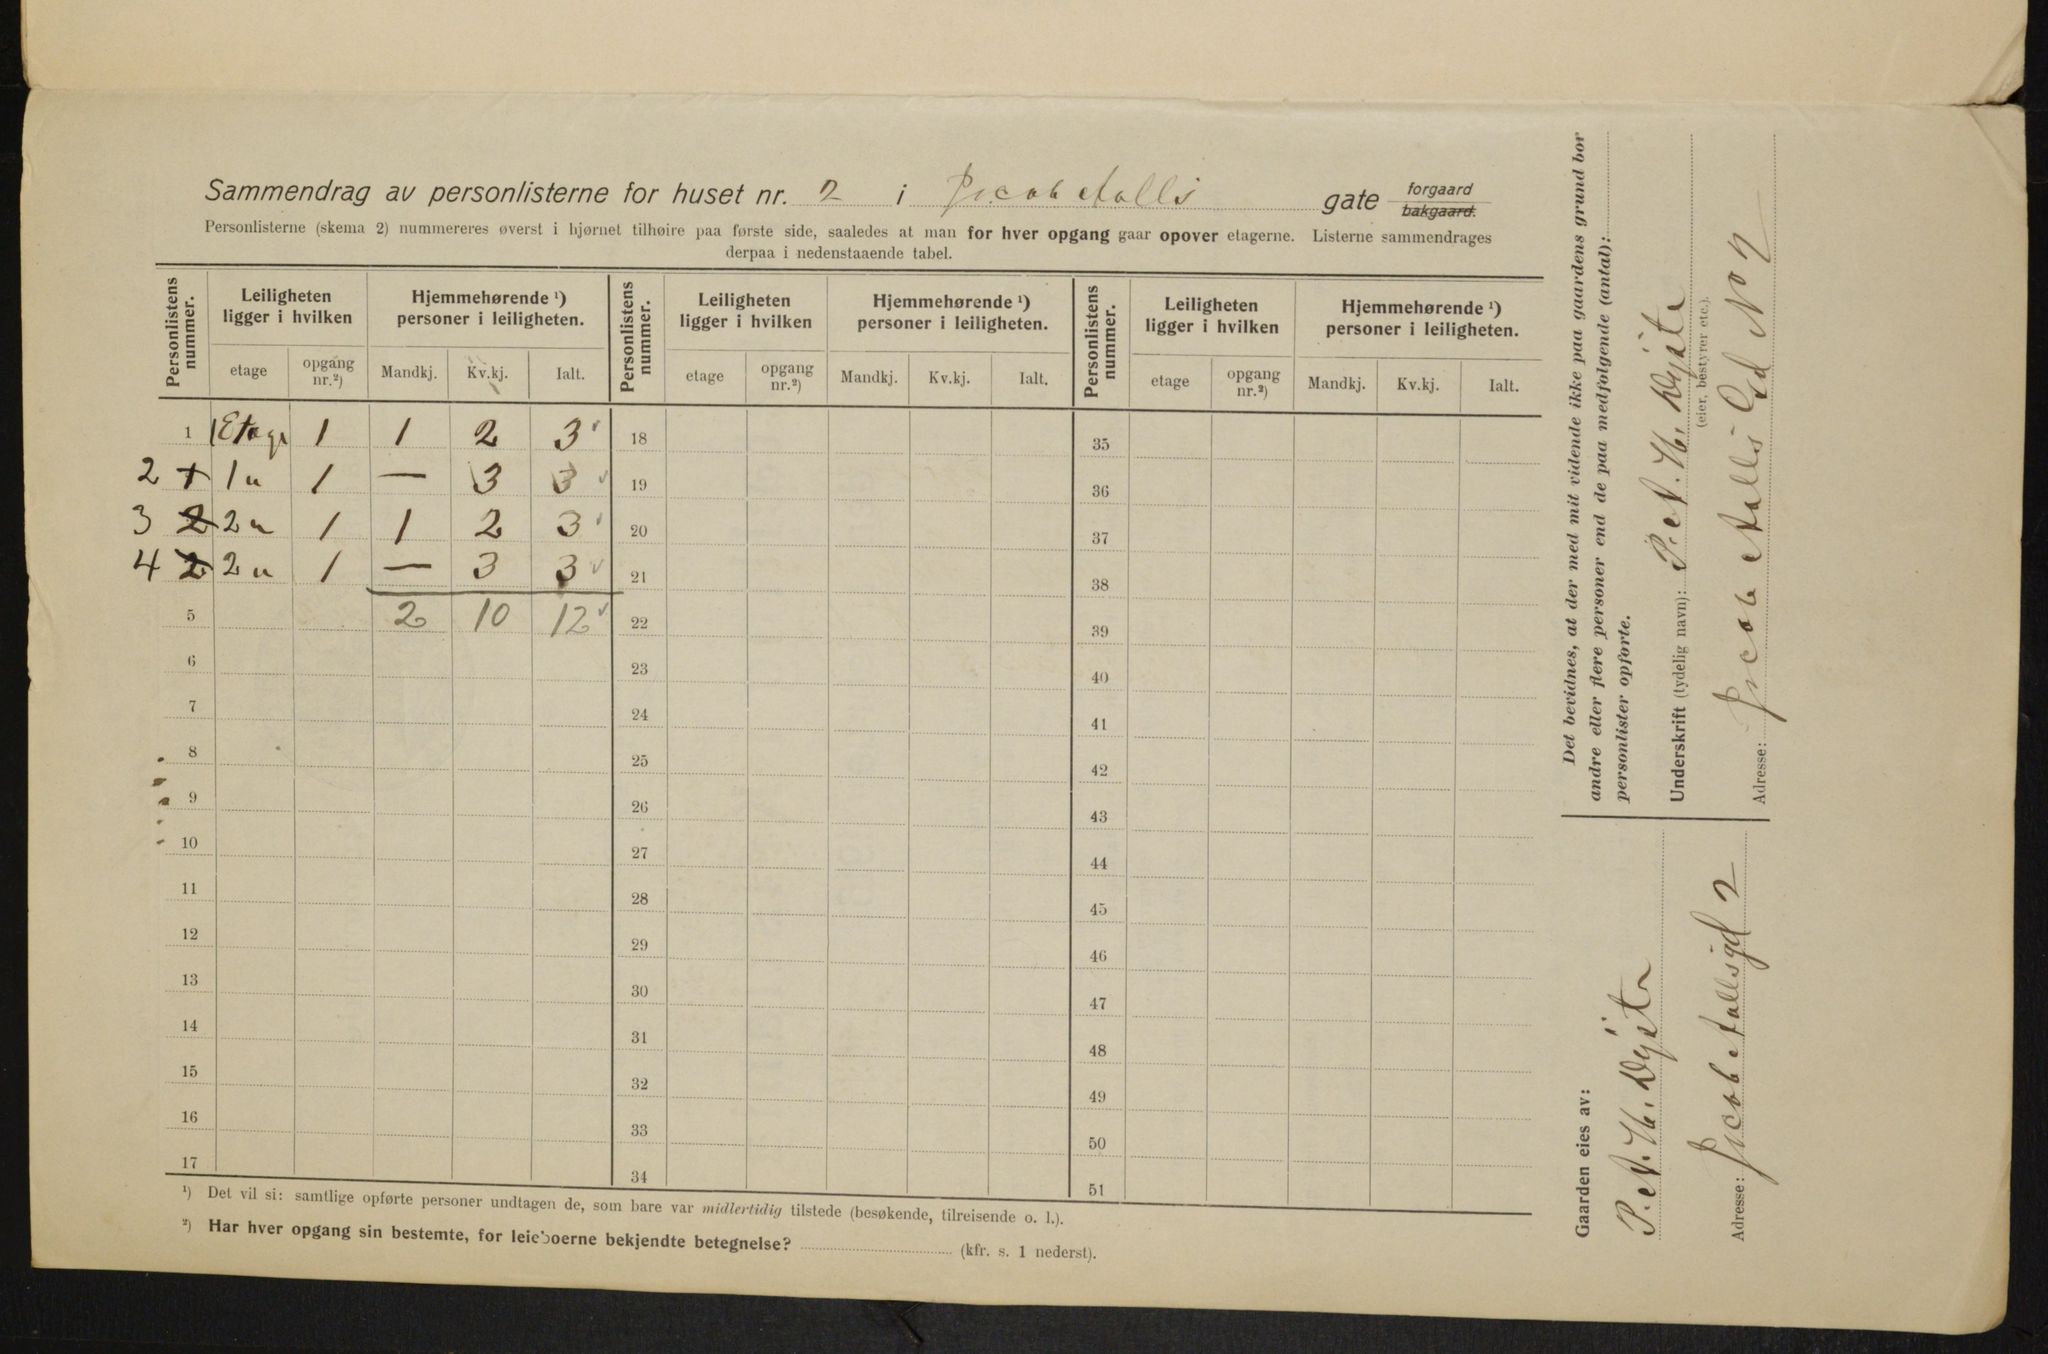 Sammendrag av personlisterne for huset nr. 2 i Jacob Aalls gate forgaard
bakgaard.
Personlisterne (skema 2) nummereres øverst i hjørnet tilhøire paa første side, saaledes at man for hver opgang gaar opover etagerne. Listerne sammendrages
derpaa i nedenstaaende tabel.
Personlistens nummer. Leiligheten ligger i hvilken Hjemmehørende ¹) personer i leiligheten. Personlistens nummer. Leiligheten ligger i hvilken Hjemmehørende ¹) personer i leiligheten. Personlistens nummer. Leiligheten ligger i hvilken Hjemmehørende ¹) personer i leiligheten.
etage opgang nr.²) Mandkj. Kv.kj. Ialt. etage opgang nr.²) Mandkj. Kv.kj. Ialt. etage opgang nr.²) Mandkj. Kv.kj. Ialt.
1 1 Etage 1 1 2 3 18 35
2 1 1 " 1 — 3 3 19 36
3 2 2 " 1 1 2 3 20 37
4 2 2 " 1 — 3 3 21 38
5 2 10 12 22 39
6 23 40
7 24 41
8 25 42
9 26 43
10 27 44
11 28 45
12 29 46
13 30 47
14 31 48
15 32 49
16 33 50
17 34 51
¹) Det vil si: samtlige opførte personer undtagen de, som bare var midlertidig tilstede (besøkende, tilreisende o. l.).
²) Har hver opgang sin bestemte, for leieboerne bekjendte betegnelse? (kfr. s. 1 nederst).
Det bevidnes, at der med mit vidende ikke paa gaardens grund bor
andre eller flere personer end de paa medfølgende (antal):
personlister opførte.
Underskrift (tydelig navn): P. A. H. Dyste
(eier, bestyrer etc.).
Adresse: Jacob Aalls Gd No 2
Gaarden eies av:
P. A. H. Dyste
Adresse: Jacob Aallsgd 2